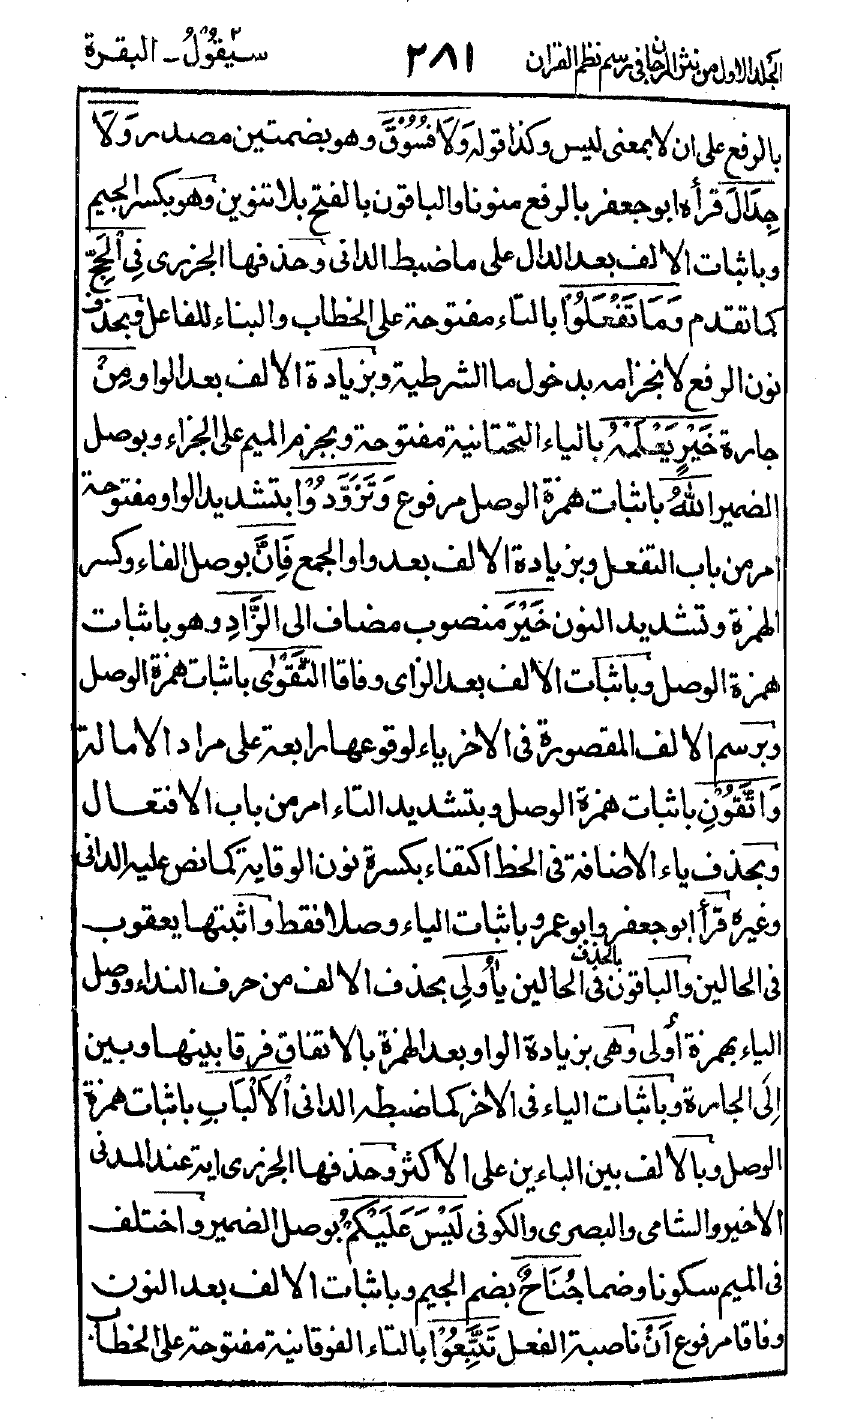 الجلد الاول من نثر المرجان في رسم نظم القران ٢٨١ سيقول٢ ـ البقرة
بالرفع على ان لا بمعنى ليس وكذا قوله وَلَا فُسُوْقَ وهو بضمتين مصدر وَلَا
جِدَالَ قرأه ابو جعفر بالرفع منونا والباقون بالفتح بلا تنوين وهو بكسر الجيم
وباثبات الالف بعد الدال على ما ضبط الدانى وحذفها الجزرى فِي الْحَجِّ
كما تقدم وَمَا تَفْعَلُوْا بالتاء مفتوحة على الخطاب والبناء للفاعل وبحذف
نون الرفع لانجزامه بدخول ما الشرطية وبزيادة الالف بعد الواو مِنْ
جارة خَيْرٍ يَعْلَمْهُ بالياء التحتانية مفتوحة وبجزم الميم على الجزاء وبوصل
الضمير اللهُ باثبات همزة الوصل مرفوع وَتَزَوَّدُوْا بتشديد الواو مفتوحة
امر من باب التفعل وبزيادة الالف بعد واو الجمع فَاِنَّ بوصل الفاء وكسر
الهمزة وتشديد النون خَيْرَ منصوب مضاف الى الزَّادِ وهو باثبات
همزة الوصل وباثبات الالف بعد الزاى وفاقا التَّقْوٰى باثبات همزة الوصل
وبرسم الالف المقصورة فى الاخر ياء لوقوعها رابعة على مراد الامالة
وَاتَّقُوْنِ باثبات همزة الوصل وبتشديد التاء امر من باب الافتعال
وبحذف ياء الاضافة فى الخط اكتفاء بكسرة نون الوقاية كما نص عليه الدانى
وغيره قرأ ابو جعفر وابو عمرو باثبات الياء وصلا فقط واثبتها يعقوب
فى الحالين والباقون بالحذف فى الحالين يٰاُولِى بحذف الالف من حرف النداء ووصل
الياء بهمزة أولى وهى بزيادة الواو بعد الهمزة بالاتفاق فرقا بينها وبين
اِلَى الجارة وباثبات الياء فى الاخر كما ضبطه الدانى الْاَلْبَابِ باثبات همزة
الوصل وبالالف بين الباءين على الاكثر وحذفها الجزرى اية عند المدنى
الاخير والشامى والبصرى والكوفى لَيْسَ عَلَيْكُمْ بوصل الضمير واختلف
فى الميم سكونا وضما جُنَاحٌ بضم الجيم وباثبات الالف بعد النون
وفاقا مرفوع اَنْ ناصبة الفعل تَبْتَغُوْا بالتاء الفوقانية مفتوحة على الخطاب